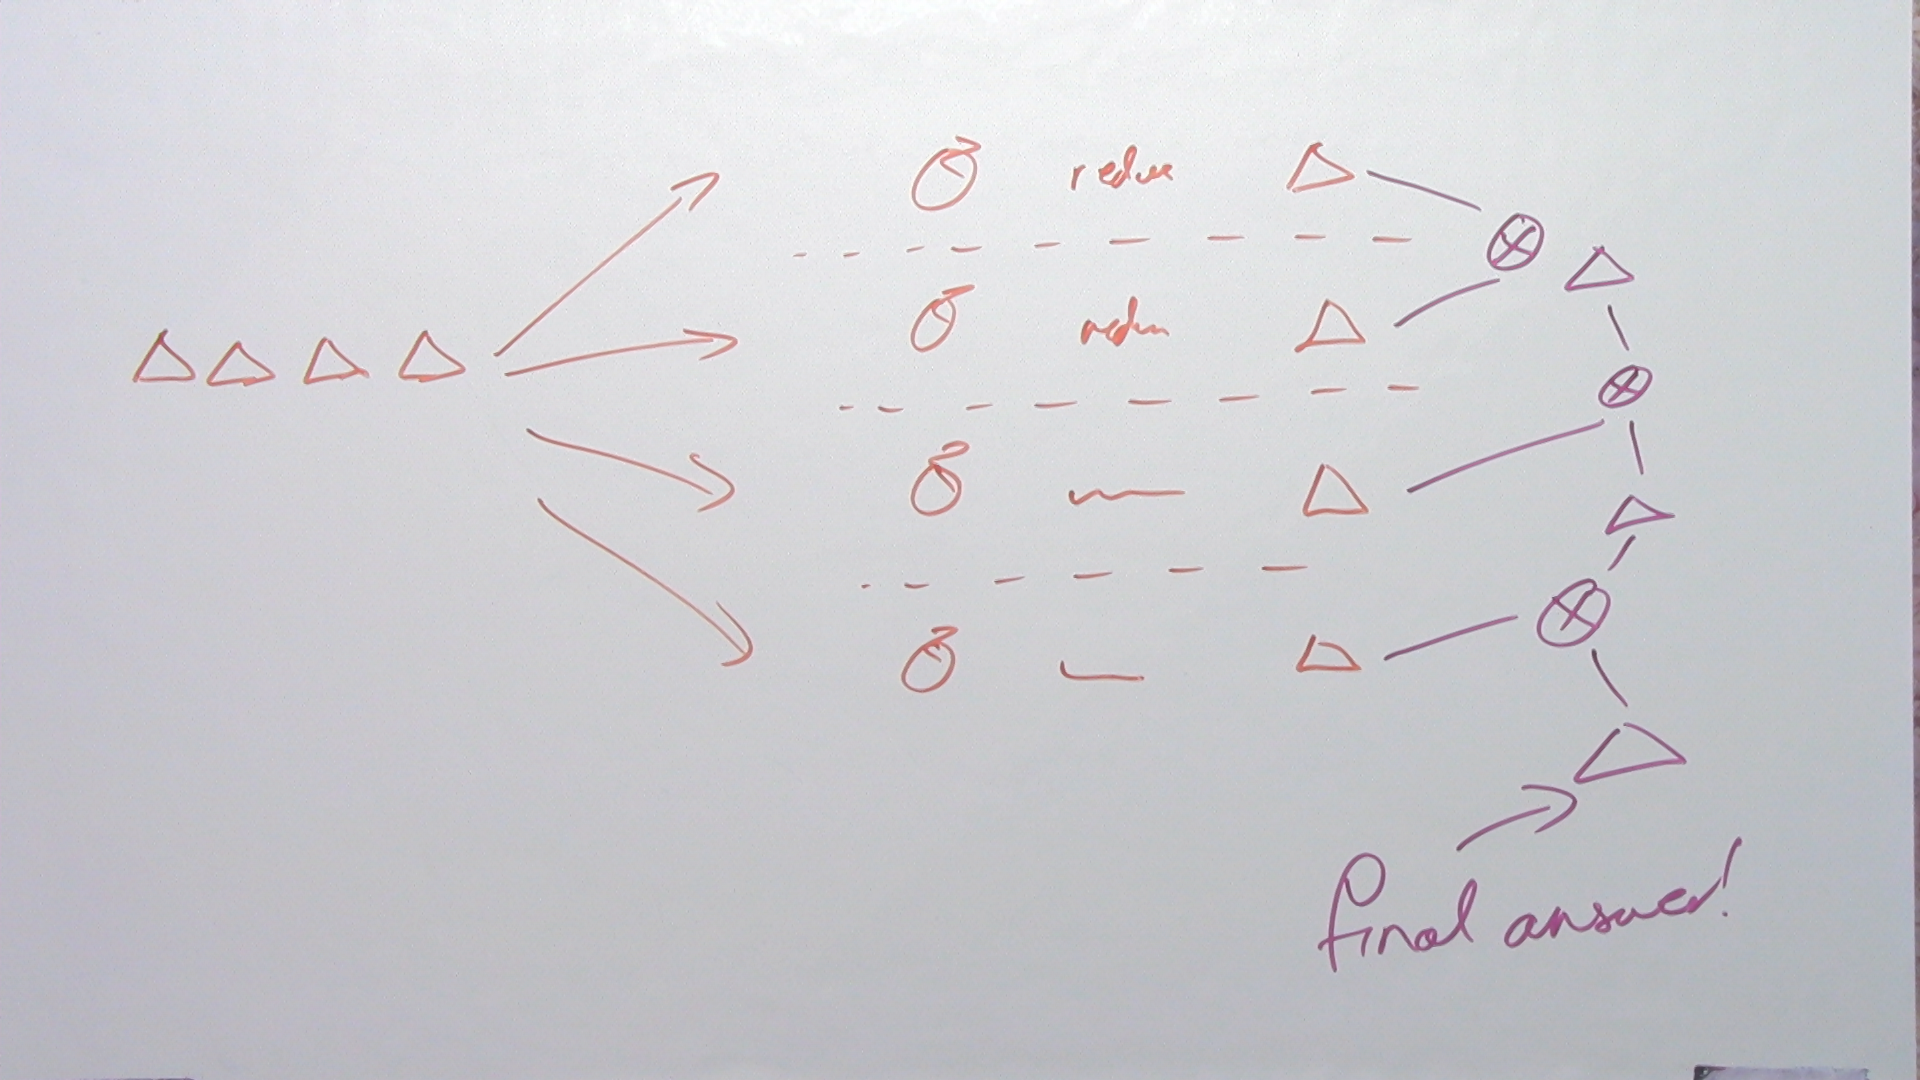 reduce
reduce
final answer!